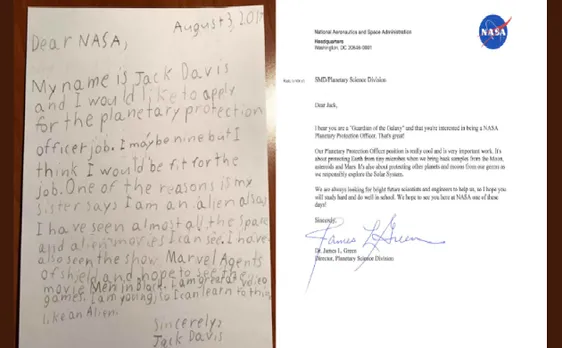 August 3, 2017
Dear NASA,
My name is Jack Davis
and I would like to apply
for the planetary protection
officer job. I may be nine but I
think I would be fit for the
job. One of the reasons is my
sister says I am an alien also
I have seen almost all the space
and alien movies I can see. I have
also seen the show Marvel Agents
of Shield and hope to see the
movie Men in Black. I am great at video
games. I am young, so I can learn to think
like an Alien.
Sincerely,
Jack Davis
National Aeronautics and Space Administration
Headquarters
Washington, DC 20546-0001
NASA
SMD/Planetary Science Division
Dear Jack,
I hear you are a "Guardian of the Galaxy" and that you're interested in being a NASA
Planetary Protection Officer. That's great!
Our Planetary Protection Officer position is really cool and is very important work. It's
about protecting Earth from tiny microbes when we bring back samples from the Moon,
asteroids and Mars. It's also about protecting other planets and moons from our germs as
we responsibly explore the Solar System.
We are always looking for bright future scientists and engineers to help us, so I hope you
will study hard and do well in school. We hope to see you here at NASA one of these
days!
Sincerely,
James L Green
Dr. James L. Green
Director, Planetary Science Division